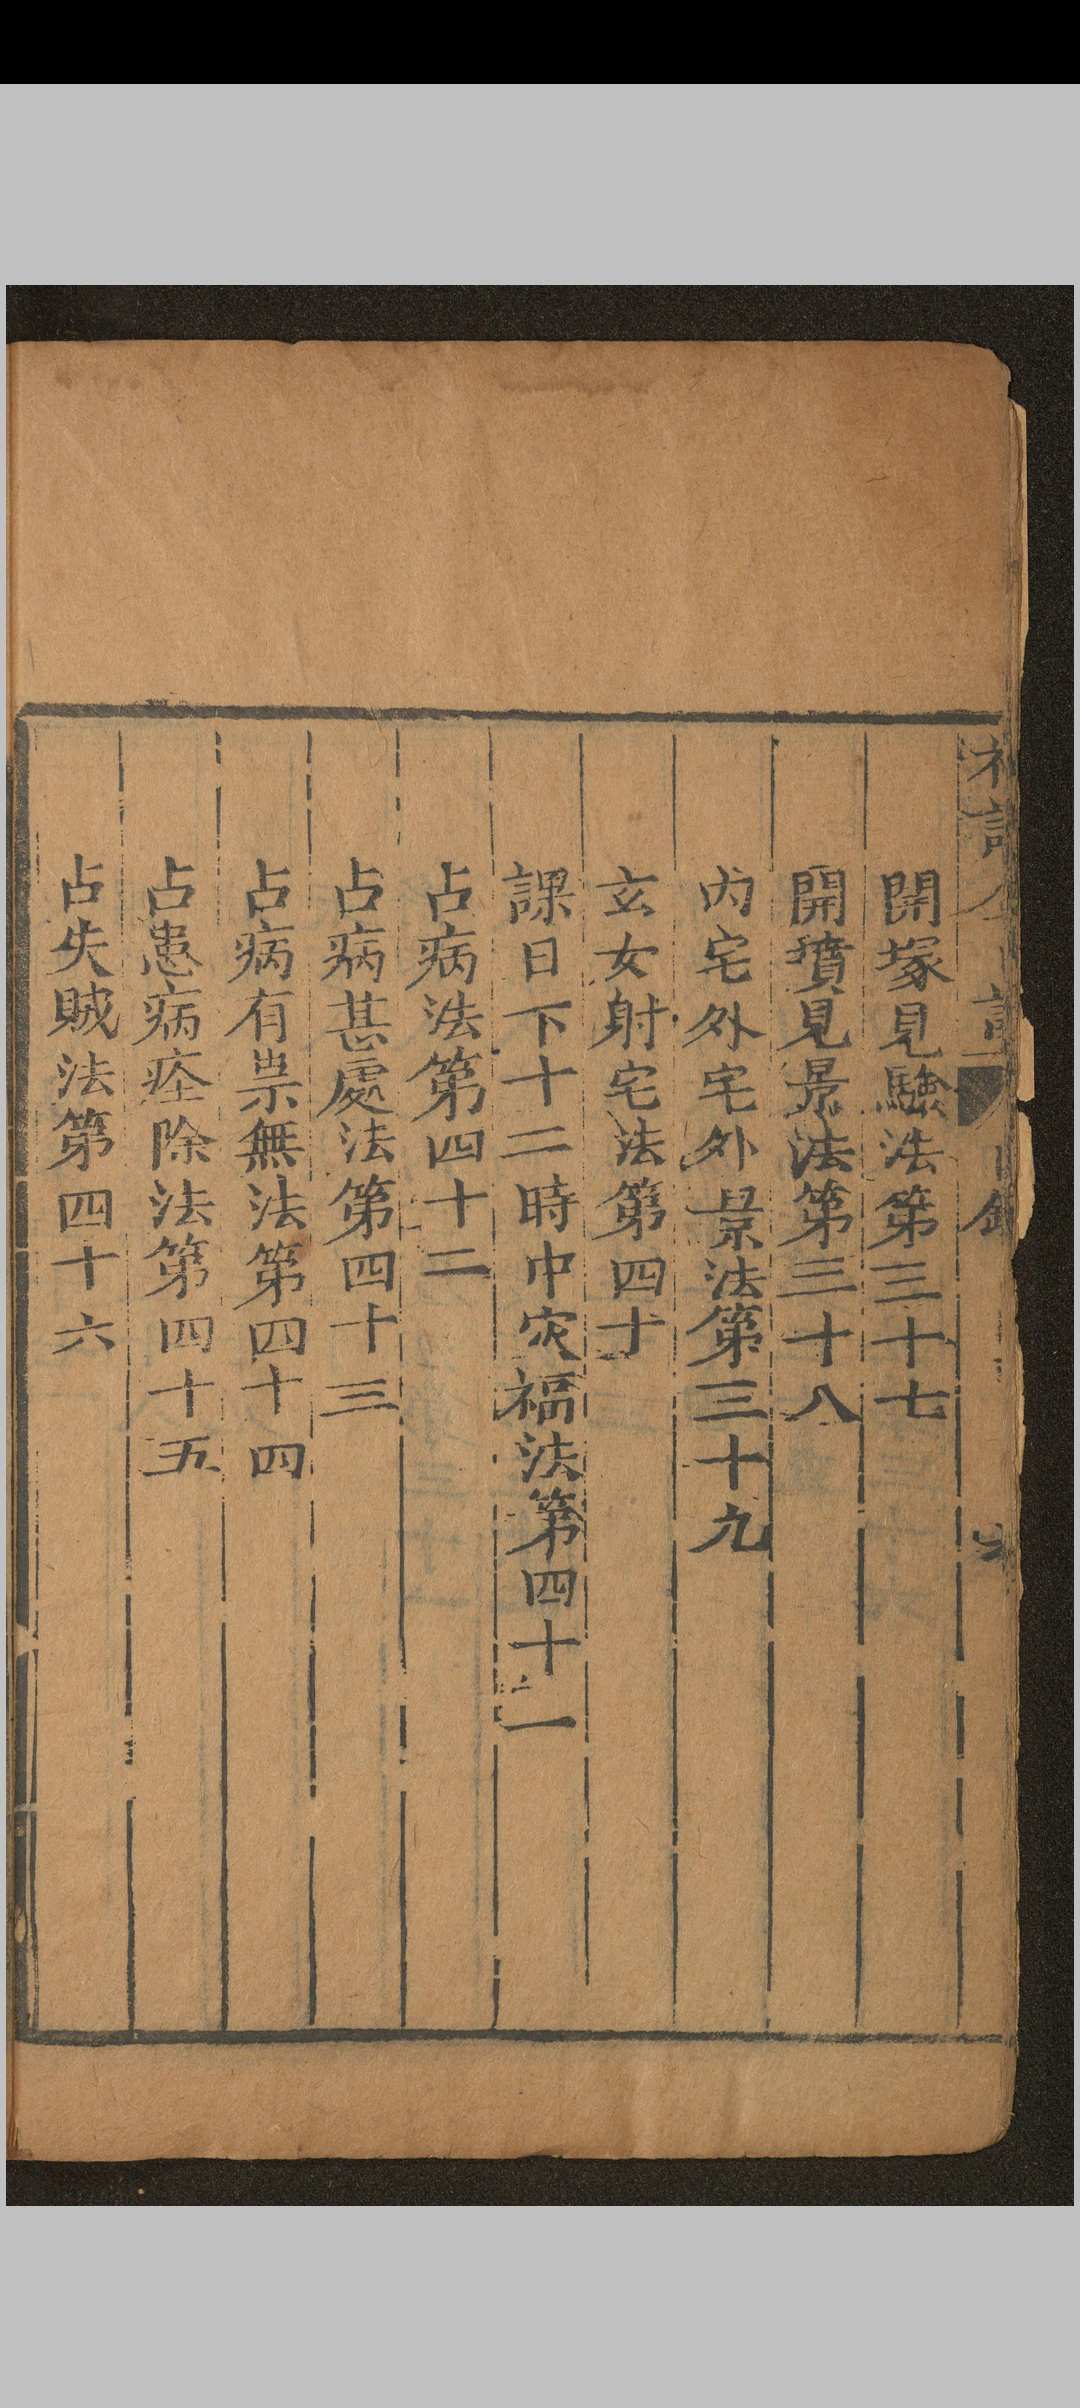 開塚見驗法第三十七
開墳見景法第三十八
內宅外宅外景法第三十九
玄女射宅法第四十
課日下十二時中灾福法第四十一
占病法第四十二
占病甚處法第四十三
占病有祟無法第四十四
占患病痊除法第四十五
占失賊法第四十六